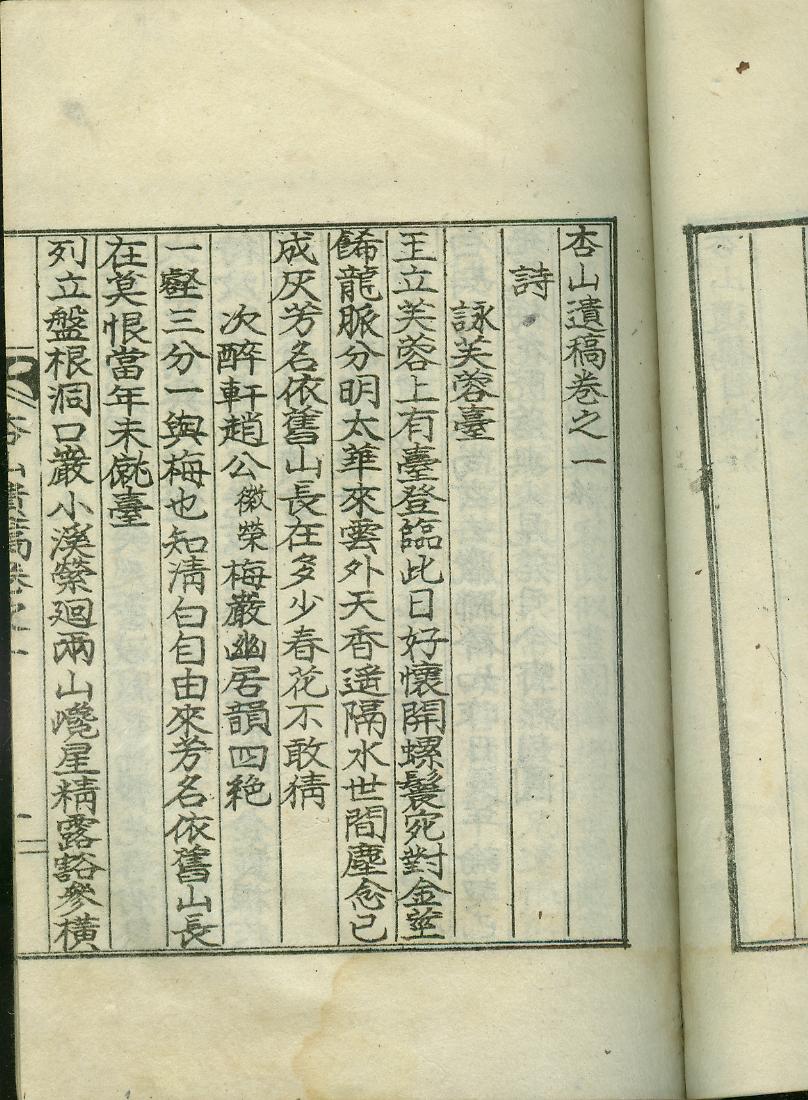 杏山遺稿卷之一
詩
詠芙蓉臺
玉立芙蓉上有臺登臨此日好懷開螺鬟宛對金莖
餙龍脈分明太華來雲外天香遙隔水世間塵念已
成灰芳名依舊山長在多少春花不敢猜
次醉軒趙公徽榮梅巖幽居韻四絶
一壑三分一與梅也知淸白自由來芳名依舊山長
在莫恨當年未僦臺
列立盤根洞口巖小溪縈廻兩山巉星精露豁參橫
杏山遺稿卷之一
一